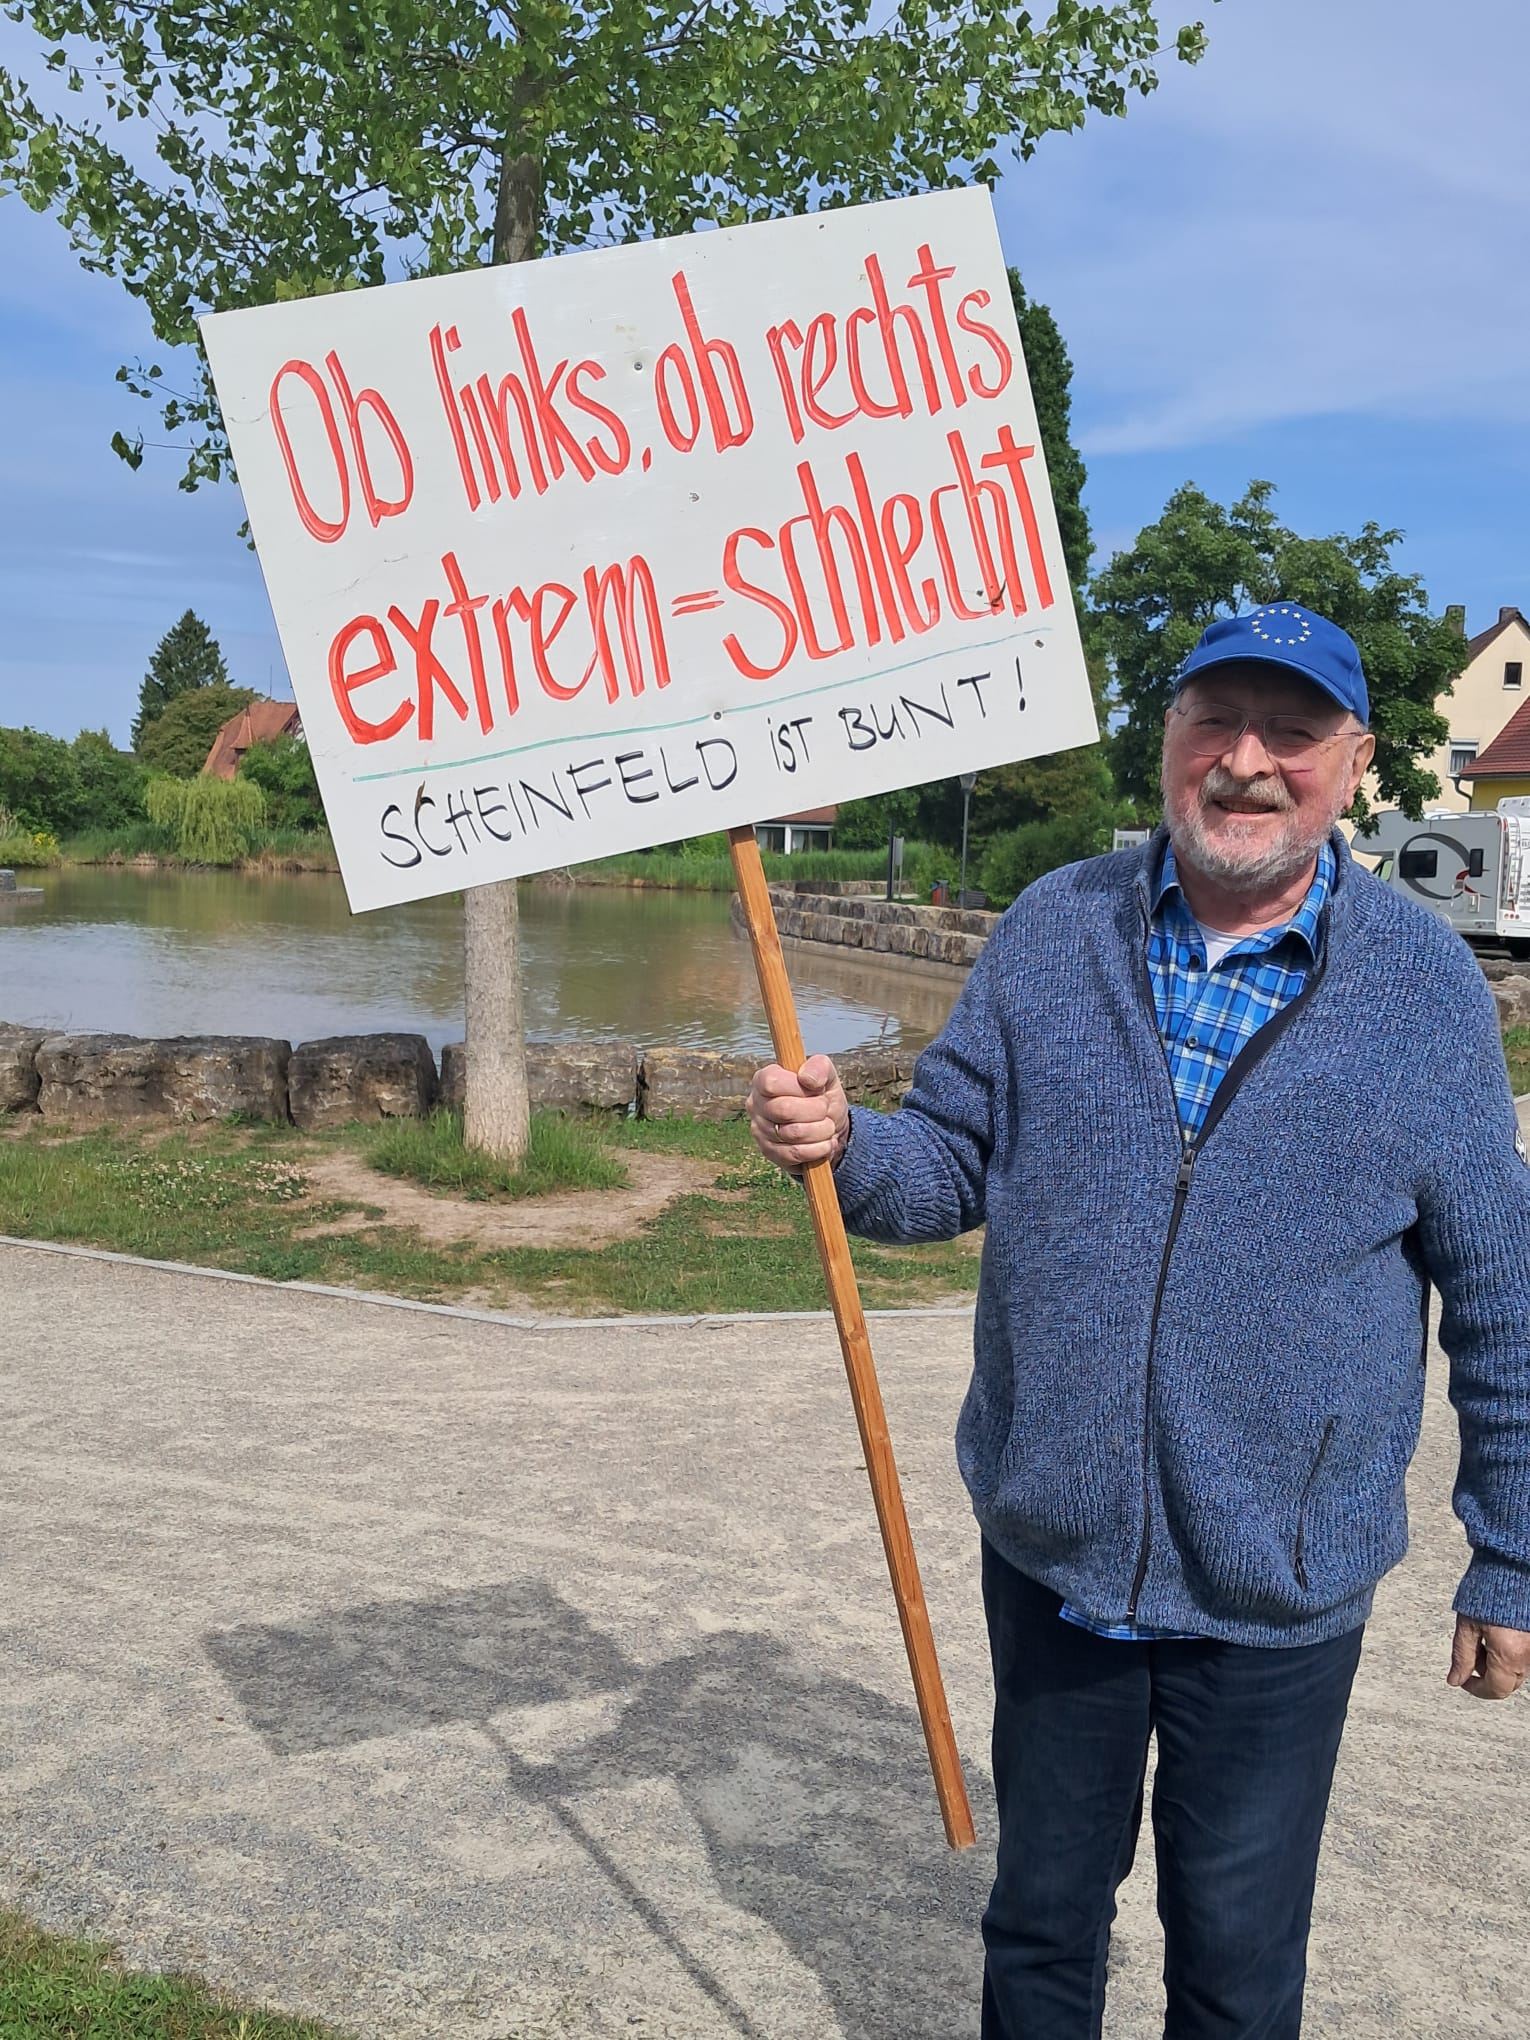 Ob links, ob rechts
extrem = schlecht
SCHEINFELD iST BUNT!